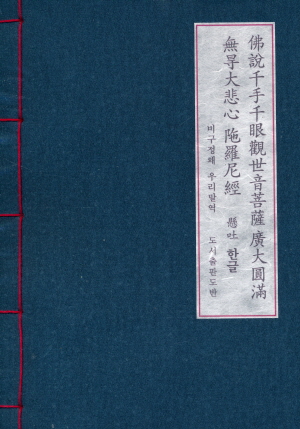 佛說千手千眼觀世音菩薩 廣大圓滿
無㝵大悲心 陁羅尼經 懸吐 한글
미구정해 우리말역 도서출판도반